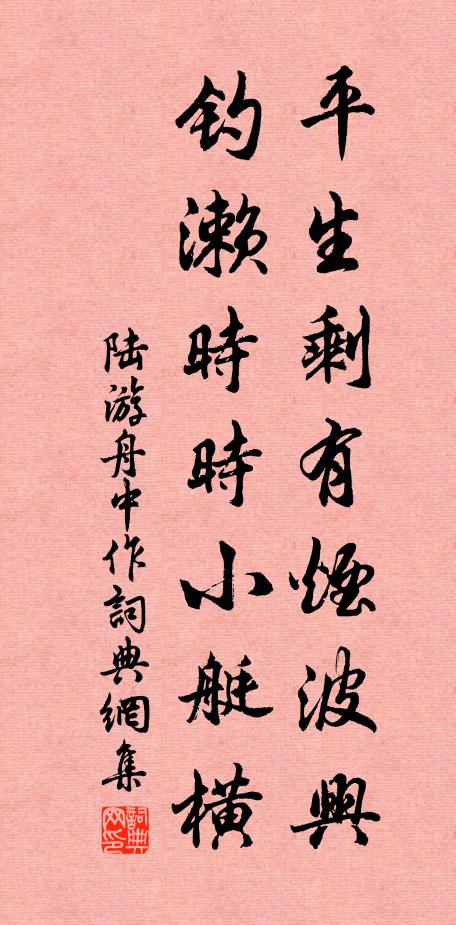 平生剩有煙波興
釣瀨時時小艇橫
陆游舟中作詞典網集
詞典网印